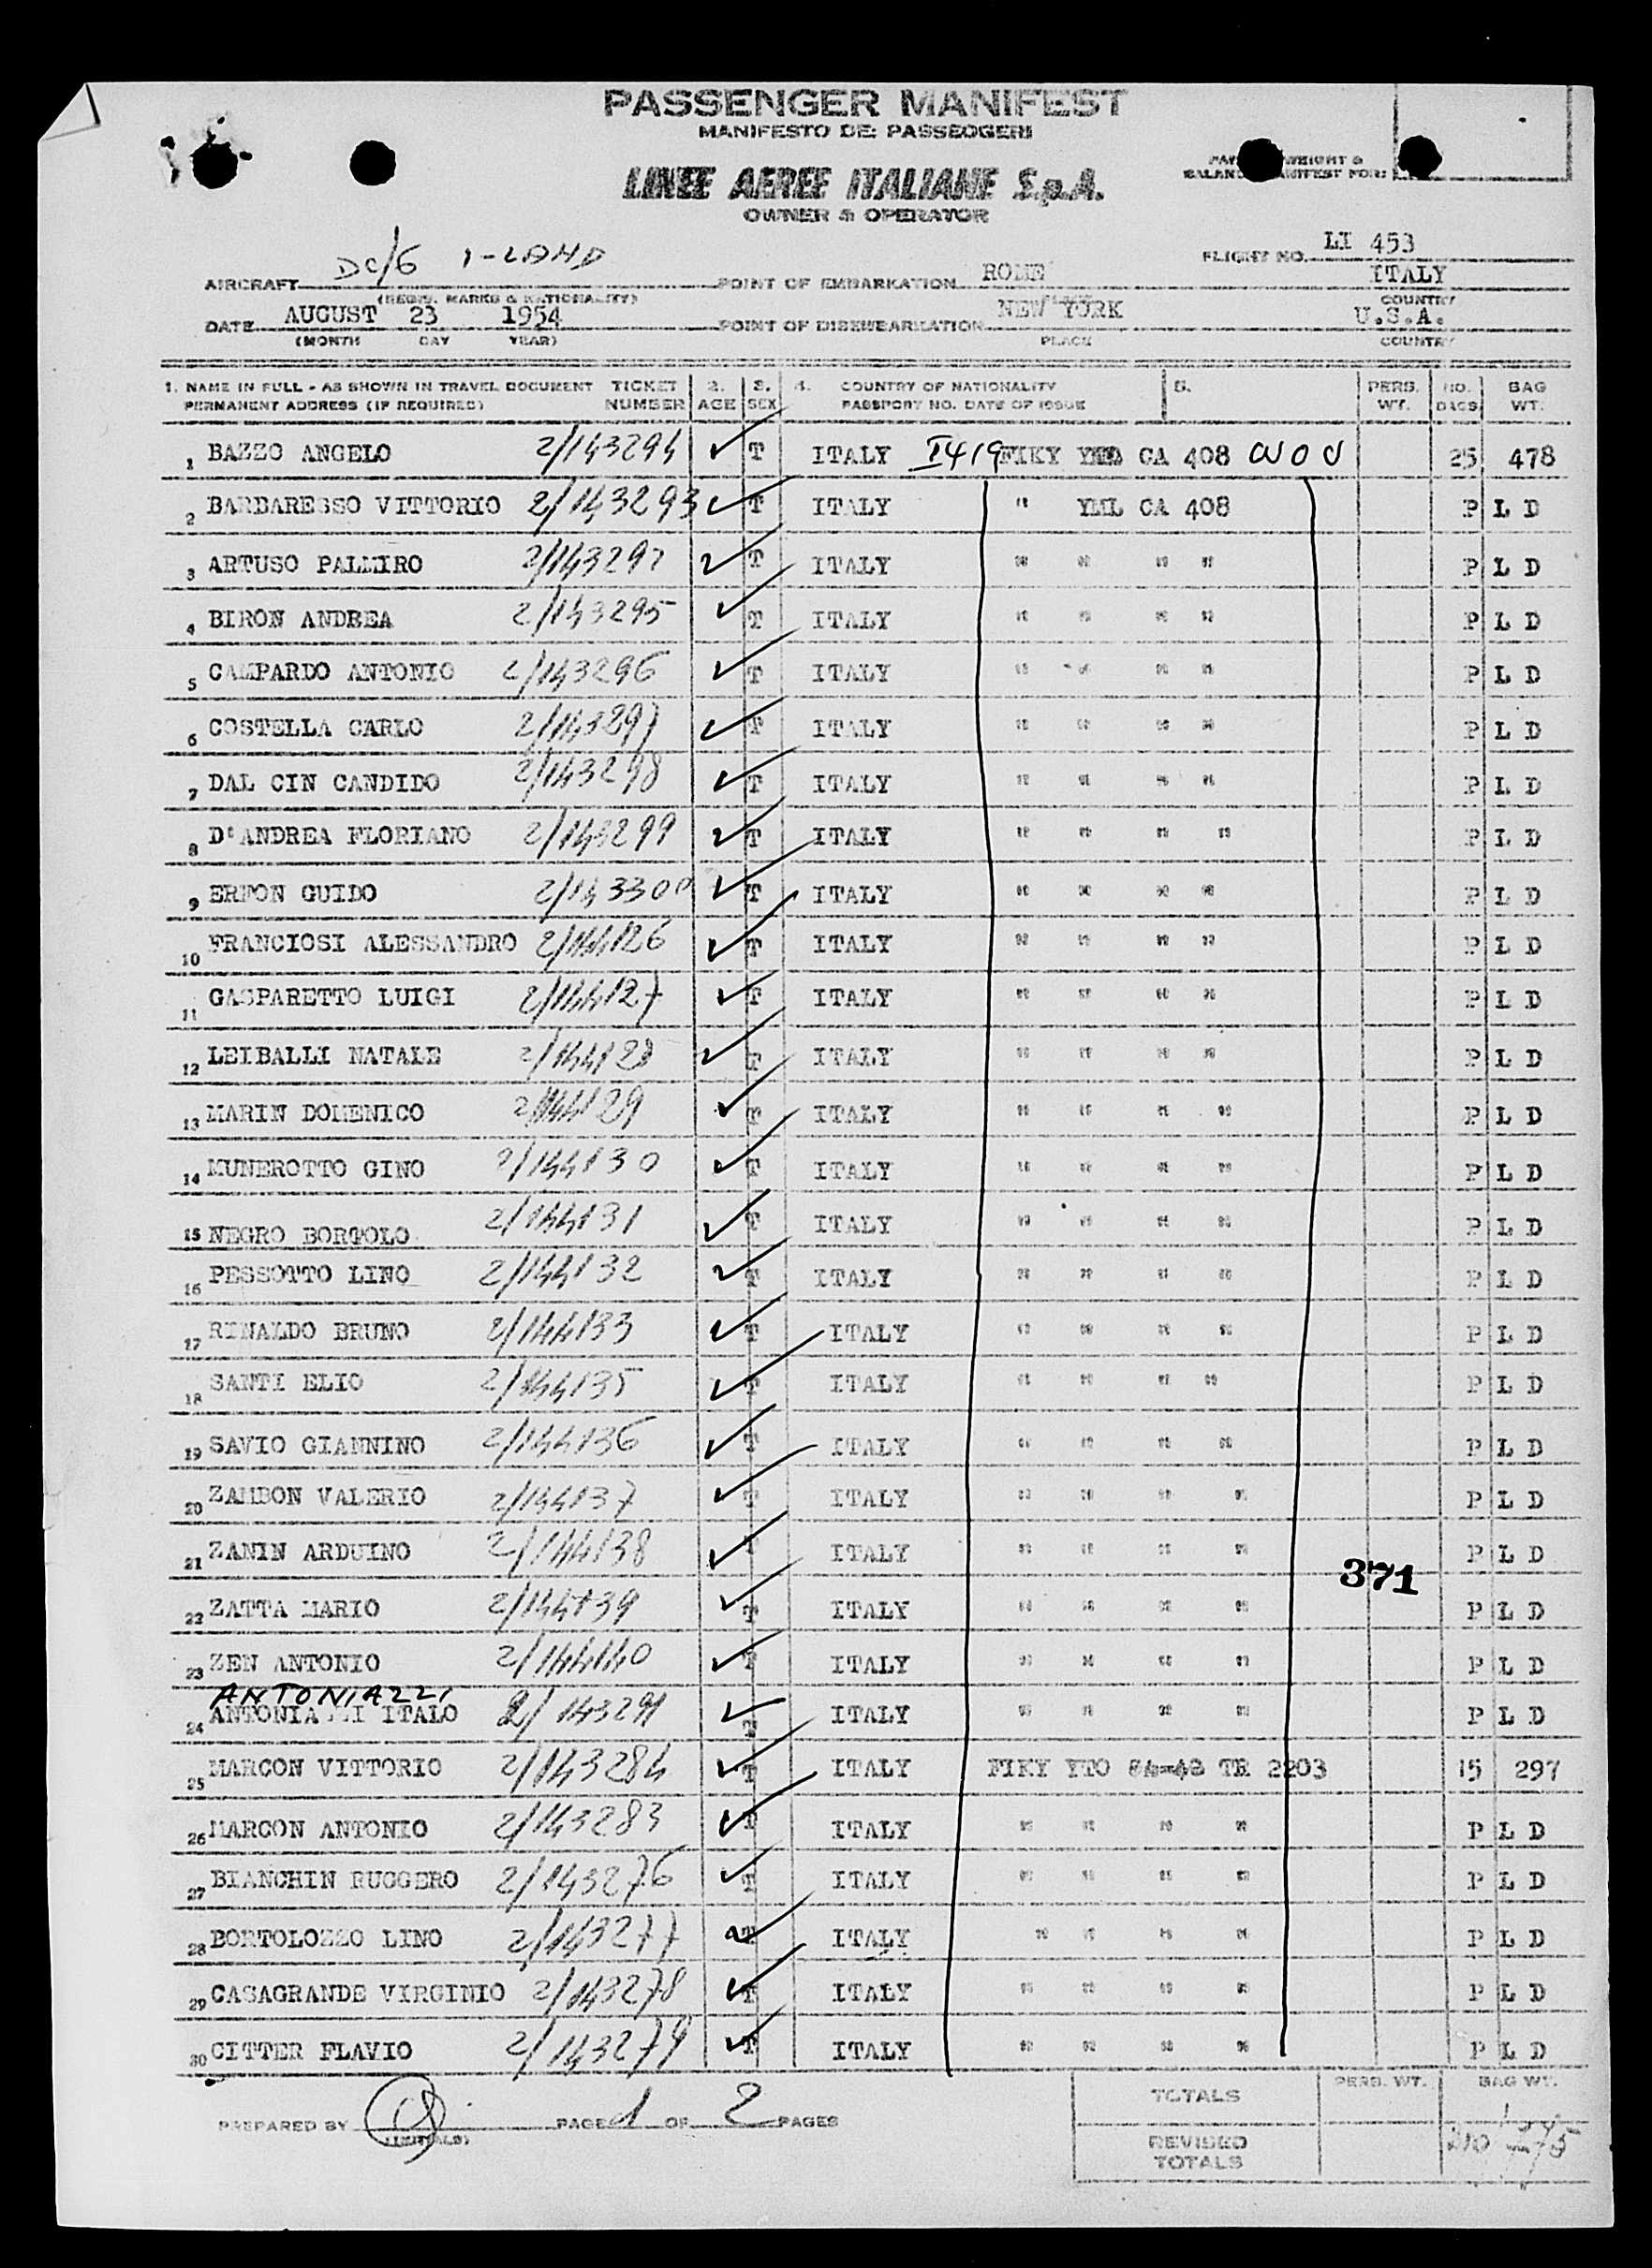 PASSENGER MANIFEST
MANIFESTO DEI PASSEGGERI
LINEE AEREE ITALIANE S.p.A.
OWNER & OPERATOR
WEIGHT &
MANIFEST FOR:
AIRCRAFT DC/6 I-LAND
(REGIS. MARKS & NATIONALITY)
POINT OF EMBARKATION ROME
FLIGHT NO. LI 453
ITALY
COUNTRY
DATE AUGUST 23 1954
(MONTH DAY YEAR)
POINT OF DISEMBARKATION NEW YORK
PLACE
U.S.A.
COUNTRY
1. NAME IN FULL - AS SHOWN IN TRAVEL DOCUMENT TICKET 2. 3. 4. COUNTRY OF NATIONALITY 5. PERS. NO. BAG
PERMANENT ADDRESS (IF REQUIRED) NUMBER AGE SEX PASSPORT NO. DATE OF ISSUE WT. BAGS WT.
1 BAZZO ANGELO 2/143294 T ITALY I419 FIKY CA 408 25 478
2 BARBARESSO VITTORIO 2/143293 T ITALY " YML CA 408 P L D
3 ARTUSO PALMIRO 2/143292 T ITALY " " " " P L D
4 BIRON ANDREA 2/143295 T ITALY " " " " P L D
5 CAMPARDO ANTONIO 2/143296 T ITALY " " " " P L D
6 COSTELLA CARLO 2/143297 T ITALY " " " " P L D
7 DAL CIN CANDIDO 2/143298 T ITALY " " " " P L D
8 D'ANDREA FLORIANO 2/143299 T ITALY " " " " P L D
9 ERMON GUIDO 2/143300 T ITALY " " " " P L D
10 FRANCIOSI ALESSANDRO 2/144126 T ITALY " " " " P L D
11 GASPARETTO LUIGI 2/144127 T ITALY " " " " P L D
12 LEIBALLI NATALE 2/144128 T ITALY " " " " P L D
13 MARIN DOMENICO 2/144129 T ITALY " " " " P L D
14 MUNEROTTO GINO 2/144130 T ITALY " " " " P L D
15 NEGRO BORTOLO 2/144131 T ITALY " " " " P L D
16 PESSOTTO LINO 2/144132 T ITALY " " " " P L D
17 RINALDO BRUNO 2/144133 T ITALY " " " " P L D
18 SANTI ELIO 2/144135 T ITALY " " " " P L D
19 SAVIO GIANNINO 2/144136 T ITALY " " " " P L D
20 ZAMBON VALERIO 2/144137 T ITALY " " " " P L D
21 ZANIN ARDUINO 2/144138 T ITALY " " " " P L D
371
22 ZATTA MARIO 2/144139 T ITALY " " " " P L D
23 ZEN ANTONIO 2/144140 T ITALY " " " " P L D
ANTONIAZZI
24 ITALO 2/143291 T ITALY " " " " P L D
25 MARCON VITTORIO 2/143284 T ITALY FIKY YTO TR 2203 15 297
26 MARCON ANTONIO 2/143283 T ITALY " " " " P L D
27 BIANCHIN RUGGERO 2/143276 T ITALY " " " " P L D
28 BORTOLOZZO LINO 2/143277 T ITALY " " " " P L D
29 CASAGRANDE VIRGINIO 2/143278 T ITALY " " " " P L D
30 CITTER FLAVIO 2/143279 T ITALY " " " " P L D
PREPARED BY
(INITIALS)
PAGE 1 OF 2 PAGES
TOTALS PERS. WT. BAG WT.
REVISED
TOTALS